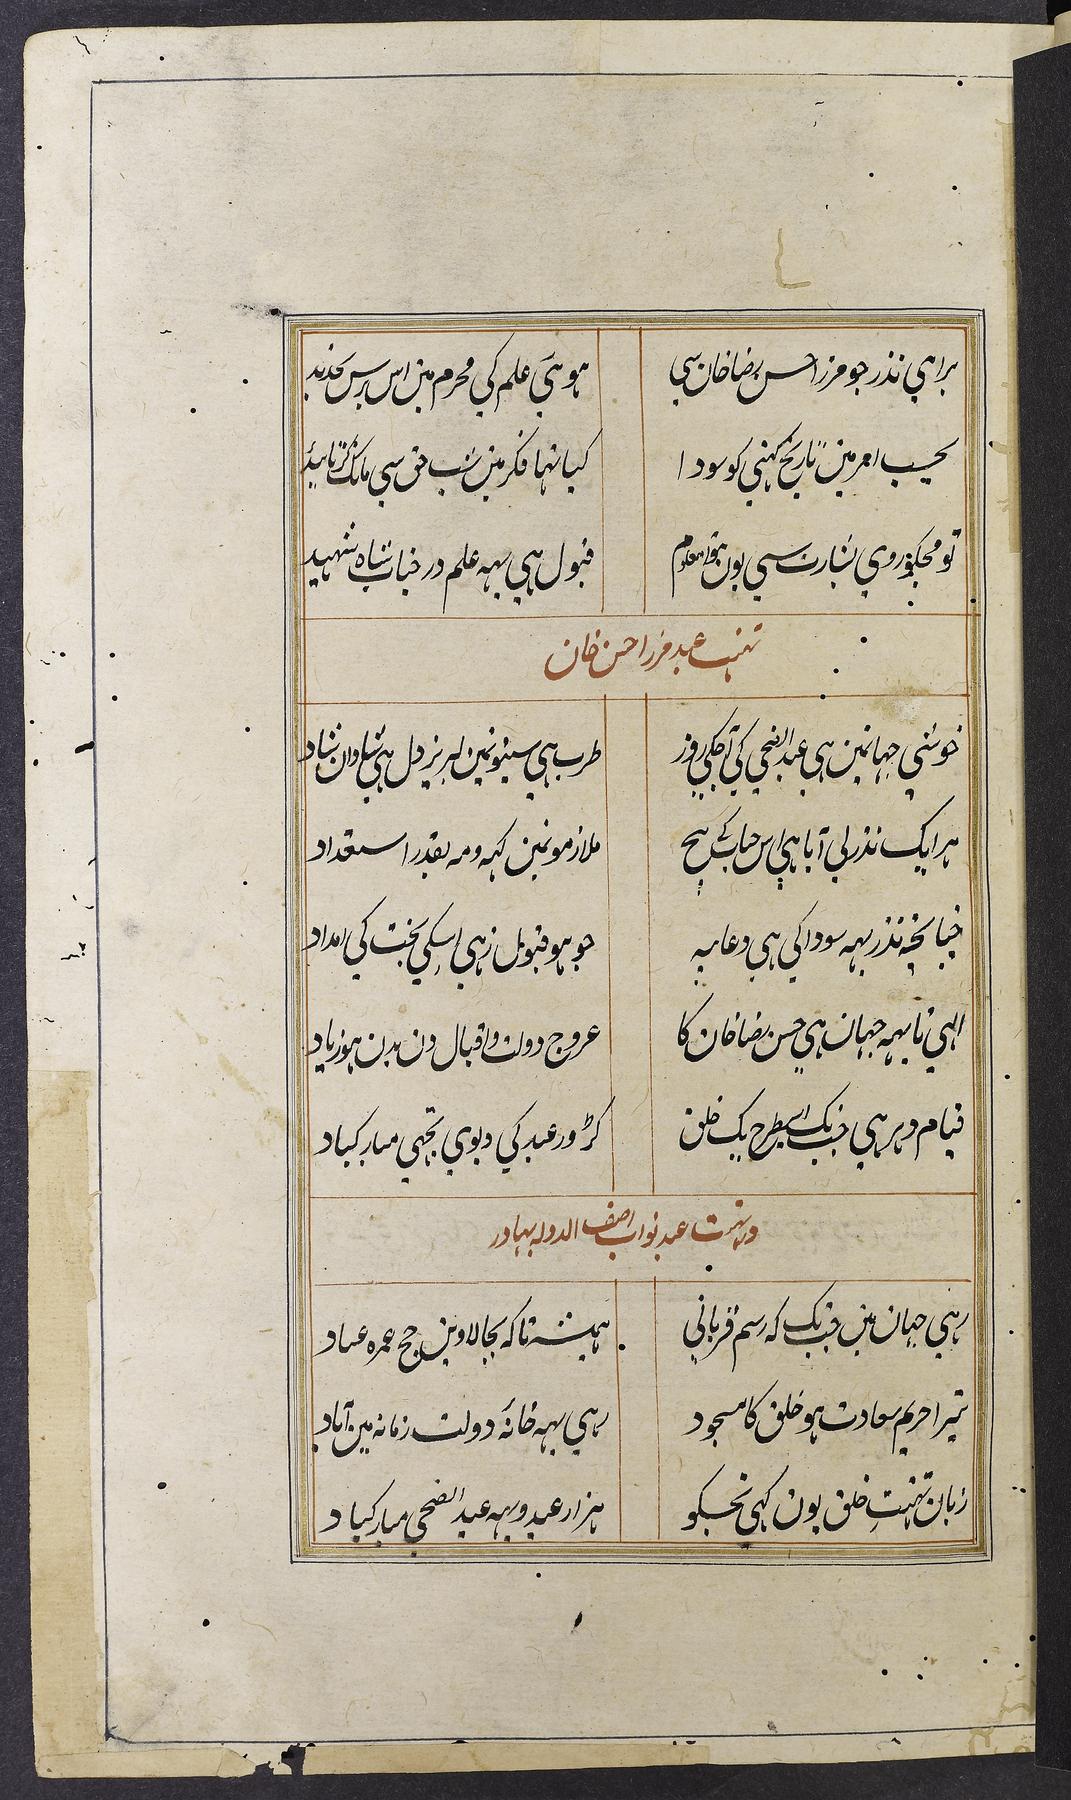 برای نذر جو مرزا حسن رضا خان سی
ہوہی علم کی محرم مین اس برس تجدید
بحسب امر مین تاریخ کہنی کو سودا
کیا تہا فکر مین شب حق سی مانک کر تائید
تو مجکو روی بشارت سی یون ہوا معلوم
قبول ہی یہہ علم در جناب شاہ شہید
تہنیت عید مرزا حسن خان
خوشی جہانمین ہی عید الضحی کی آجکی روز
طرب ہی سینونمین لبریز دل ہی شادان شاد
ہر ایک نذر لی آیا ہی اس جناب کے بیچ
ملازمونمین کہہ و مہ بقدر استعداد
چنانچہ نذر یہہ سودا کی ہی دعائیہ
جو ہو قبول زہی اسکی بخت کی امداد
الہی تا یہہ جہان ہی حسن رضا خان کا
عروج دولت و اقبال دن بدن ہو زیاد
قیام دہر ہی جب تک اسیطرح یک خلق
کڑور عید کی دیوی تجہی مبارکباد
در تہنیت عید نواب اصف الدولہ بہادر
رہی جہان مین جب تک کہ رسم قربانی
ہمیشہ تا کہ بجا لاوین حج عمرہ عباد
تیرا حریم سعادت ہو خلق کا مسجود
رہی یہہ خانۂ دولت زمانہ مین آباد
زبان تہنیتِ خلق یون کہی تجسکو
ہزار عید و یہہ عید الضحی مبارکباد